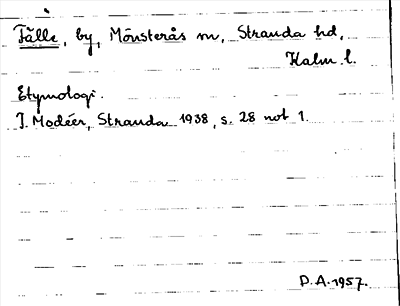 Fälle, by, Mönsterås sn, Stranda hd,
Kalm. l.
Etymologi.
I. Modéer, Stranda 1938, s. 28 not 1.
D.A. 1957.